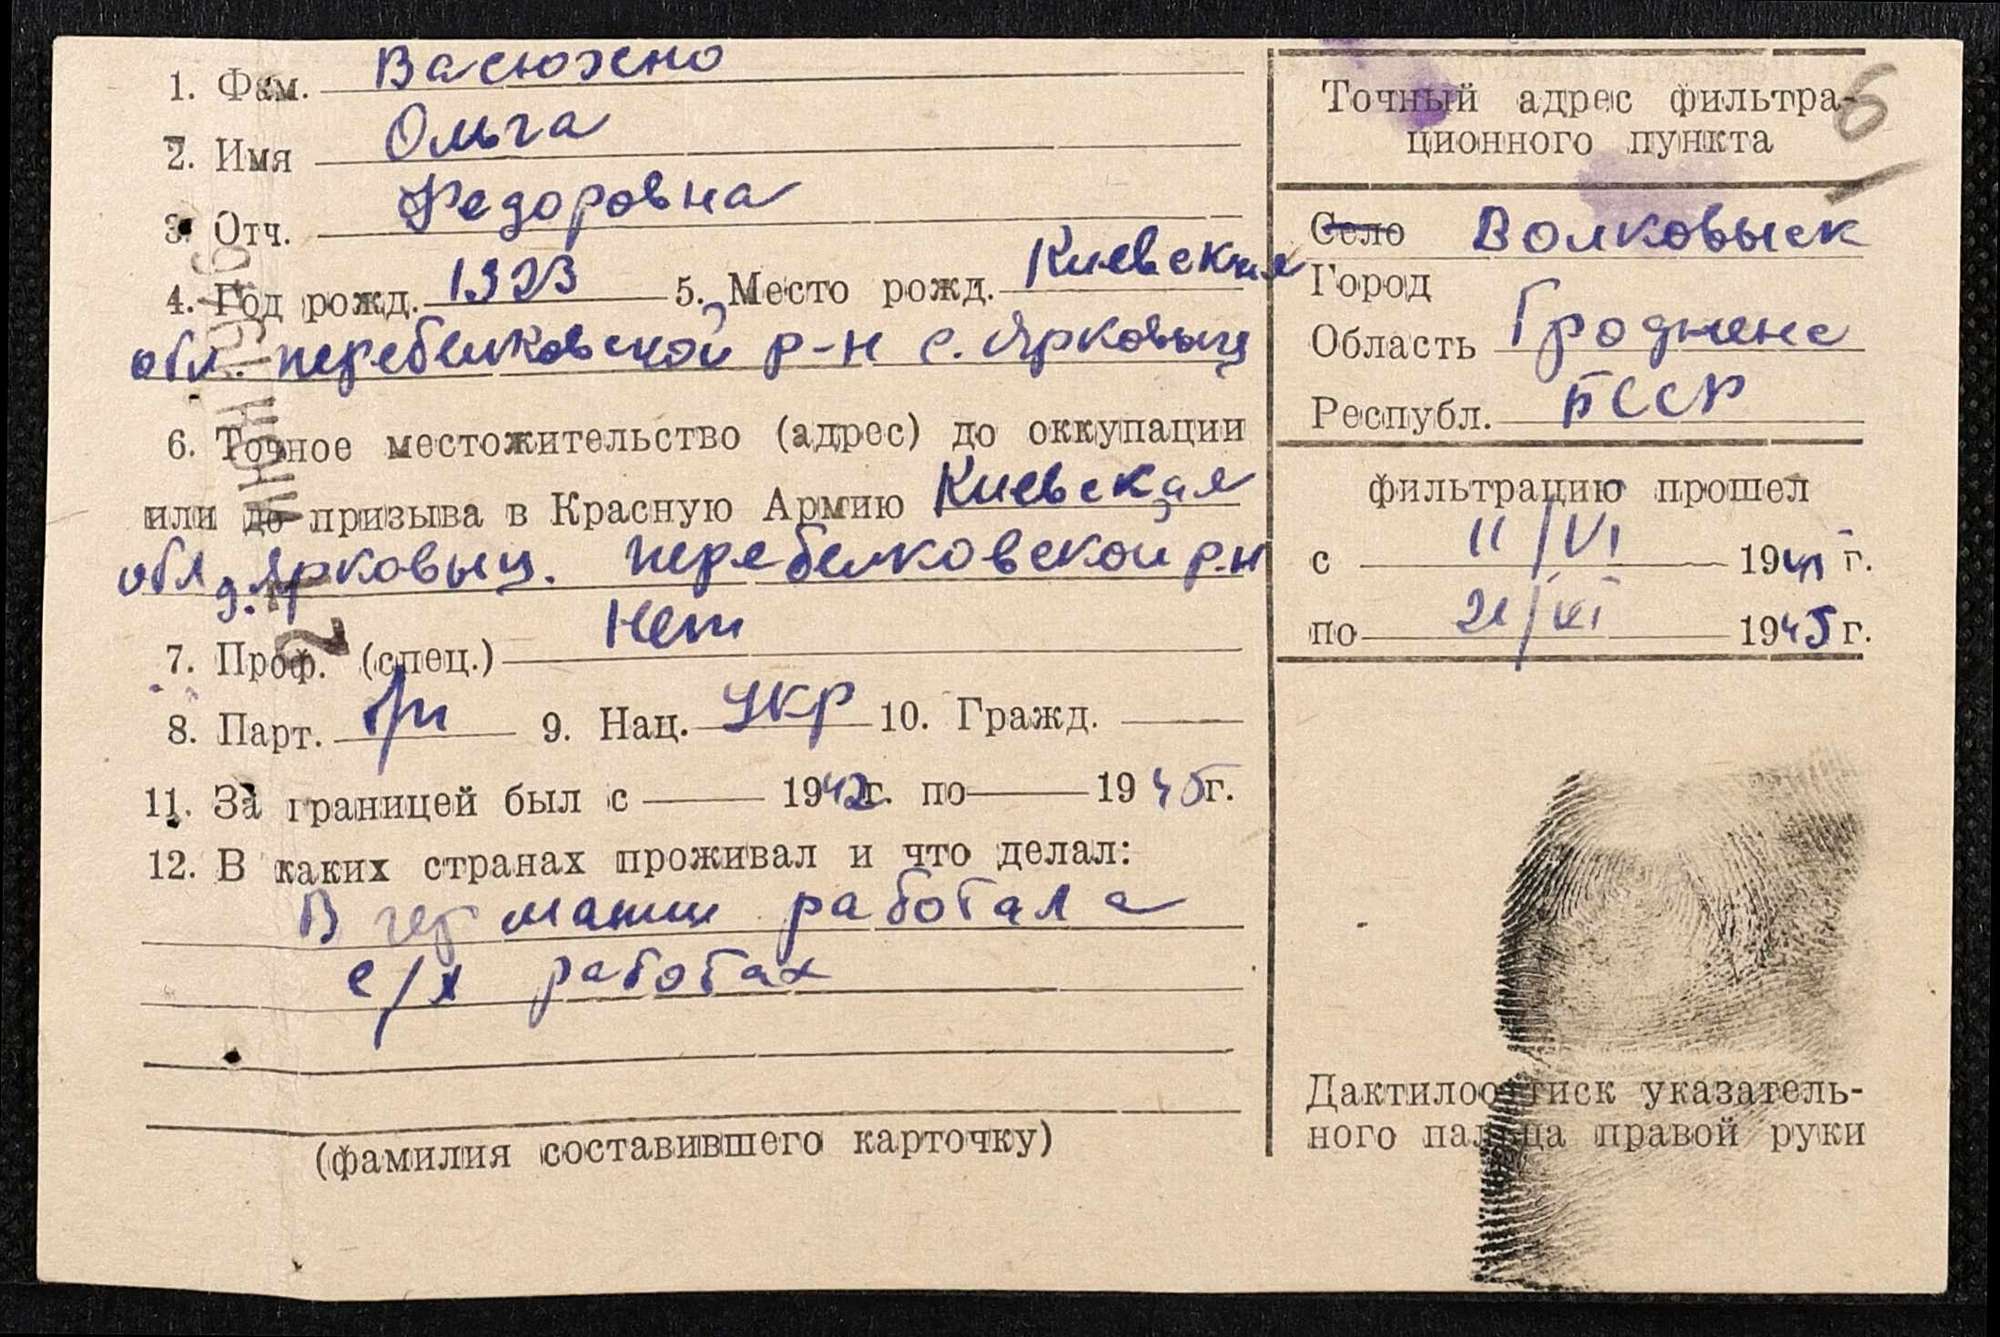 1. Фам. Васюхно
2. Имя Ольга
3. Отч. Федоровна
4. Год рожд. 1923 5. Место рожд. Киевская
обл. перебелковской р-н с. Ярковыц
6. Точное местожительство (адрес) до оккупации
или до призыва в Красную Армию Киевская
обл д. Ярковыц. перебелковской р-н
7. Проф. (спец.) Нет
8. Парт. 9. Нац. Укр 10. Гражд.
11. За границей был с 1942 г. по 1945 г.
12. В каких странах проживал и что делал:
В германии работала
с/х работах
(фамилия составившего карточку)
2 ИЮН 1946
6
Точный адрес фильтра-
ционного пункта
Село Волковыск
Город
Область Гродненс
Республ. БССР
фильтрацию прошел
с 11/VI 1945 г.
по 21/VI 1945 г.
Дактилооттиск указатель-
ного пальца правой руки